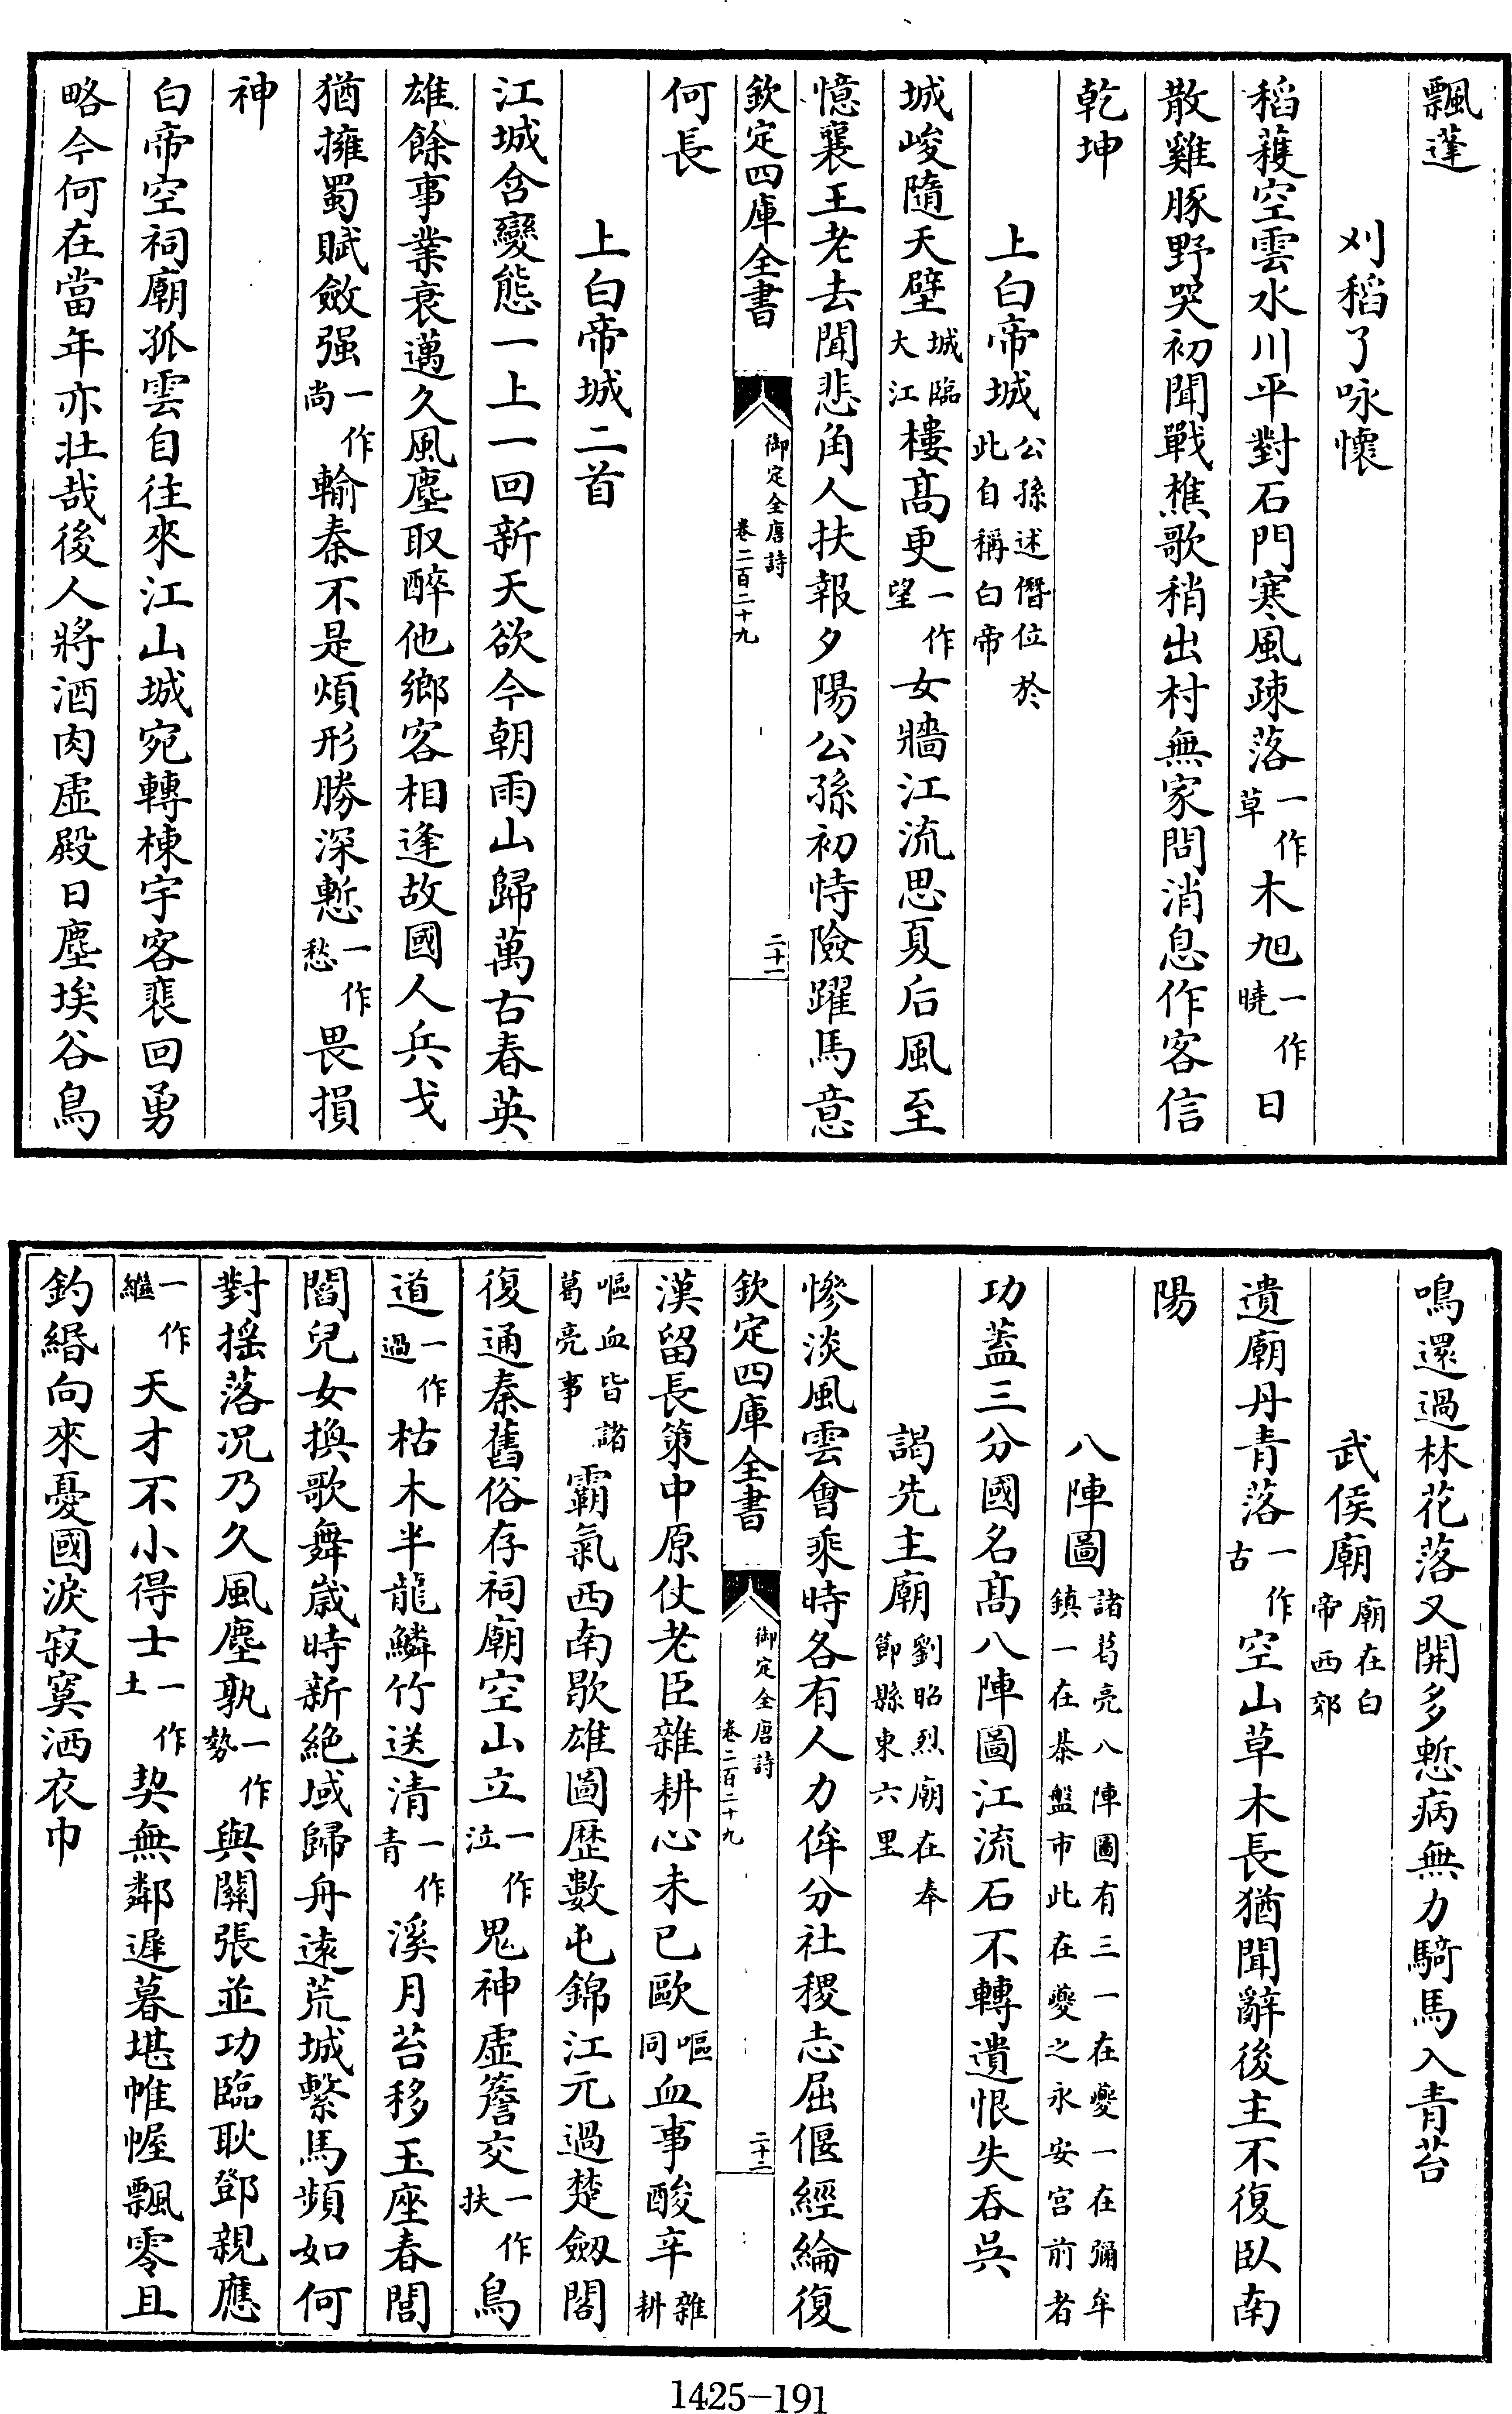 飄蓬
刈稻了咏懷
稻蓰空雲水川平對石門寒風疎落一作草木旭一作曉日
散雞豚野哭初聞戰樵歌稍出村無家問消息作客信
乾坤
上白帝城公孫述僭位於此自稱白帝
城峻隨天壁城臨大江樓髙更一作望女牆江流思夏后風至
憶襄王老去聞悲角人扶報夕陽公孫初恃險躍馬意
欽定四庫全書 御定全唐詩卷二百二十九 二十一
何長
上白帝城二首
江城含變態一上一回新天欲今朝雨山歸萬古春英
雄餘事業衰邁久風塵取醉他鄉客相逢故國人兵戈
猶擁蜀賦斂强一作尚輸秦不是煩形勝深慙一作愁畏損
神
白帝空祠廟孤雲自往來江山城宛轉棟宇客裵回勇
略今何在當年亦壮哉後人將酒肉虚殿日塵埃谷鳥
鳴還過林花落又開多慙病無力騎馬入青苔
武侯廟廟在白帝西郊
遺廟丹青落一作古空山草木長猶聞辭後主不復臥南
陽
八陣圖諸葛亮八陣圖有三一在夔一在彌牟鎮一在棊盤市此在夔之永安宫前者
功葢三分國名髙八陣圖江流石不轉遺恨失吞吳
謁先主廟劉昭烈廟在奉節縣東六里
慘淡風雲會乘時各有人力侔分社稷志屈偃經綸復
欽定四庫全書 御定全唐詩卷二百二十九 二十二
漢留長策中原仗老臣雜耕心未已歐嘔同血事酸辛雜耕
嘔血皆諸葛亮事霸氣西南歇雄圖歴數屯錦江元過楚劔閣
復通秦舊俗存祠廟空山立一作泣鬼神虚簷交一作扶鳥
道一作過枯木半龍鱗竹送清一作青溪月苔移玉座春閭
閻兒女換歌舞歲時新絶域歸舟逺荒城繫馬頻如何
對揺落况乃久風塵孰一作勢與關張並功臨耿鄧親應
一作繼天才不小得士一作土契無鄰遲暮堪帷幄飄零且
釣緡向來憂國淚寂寞洒衣巾
1425—191